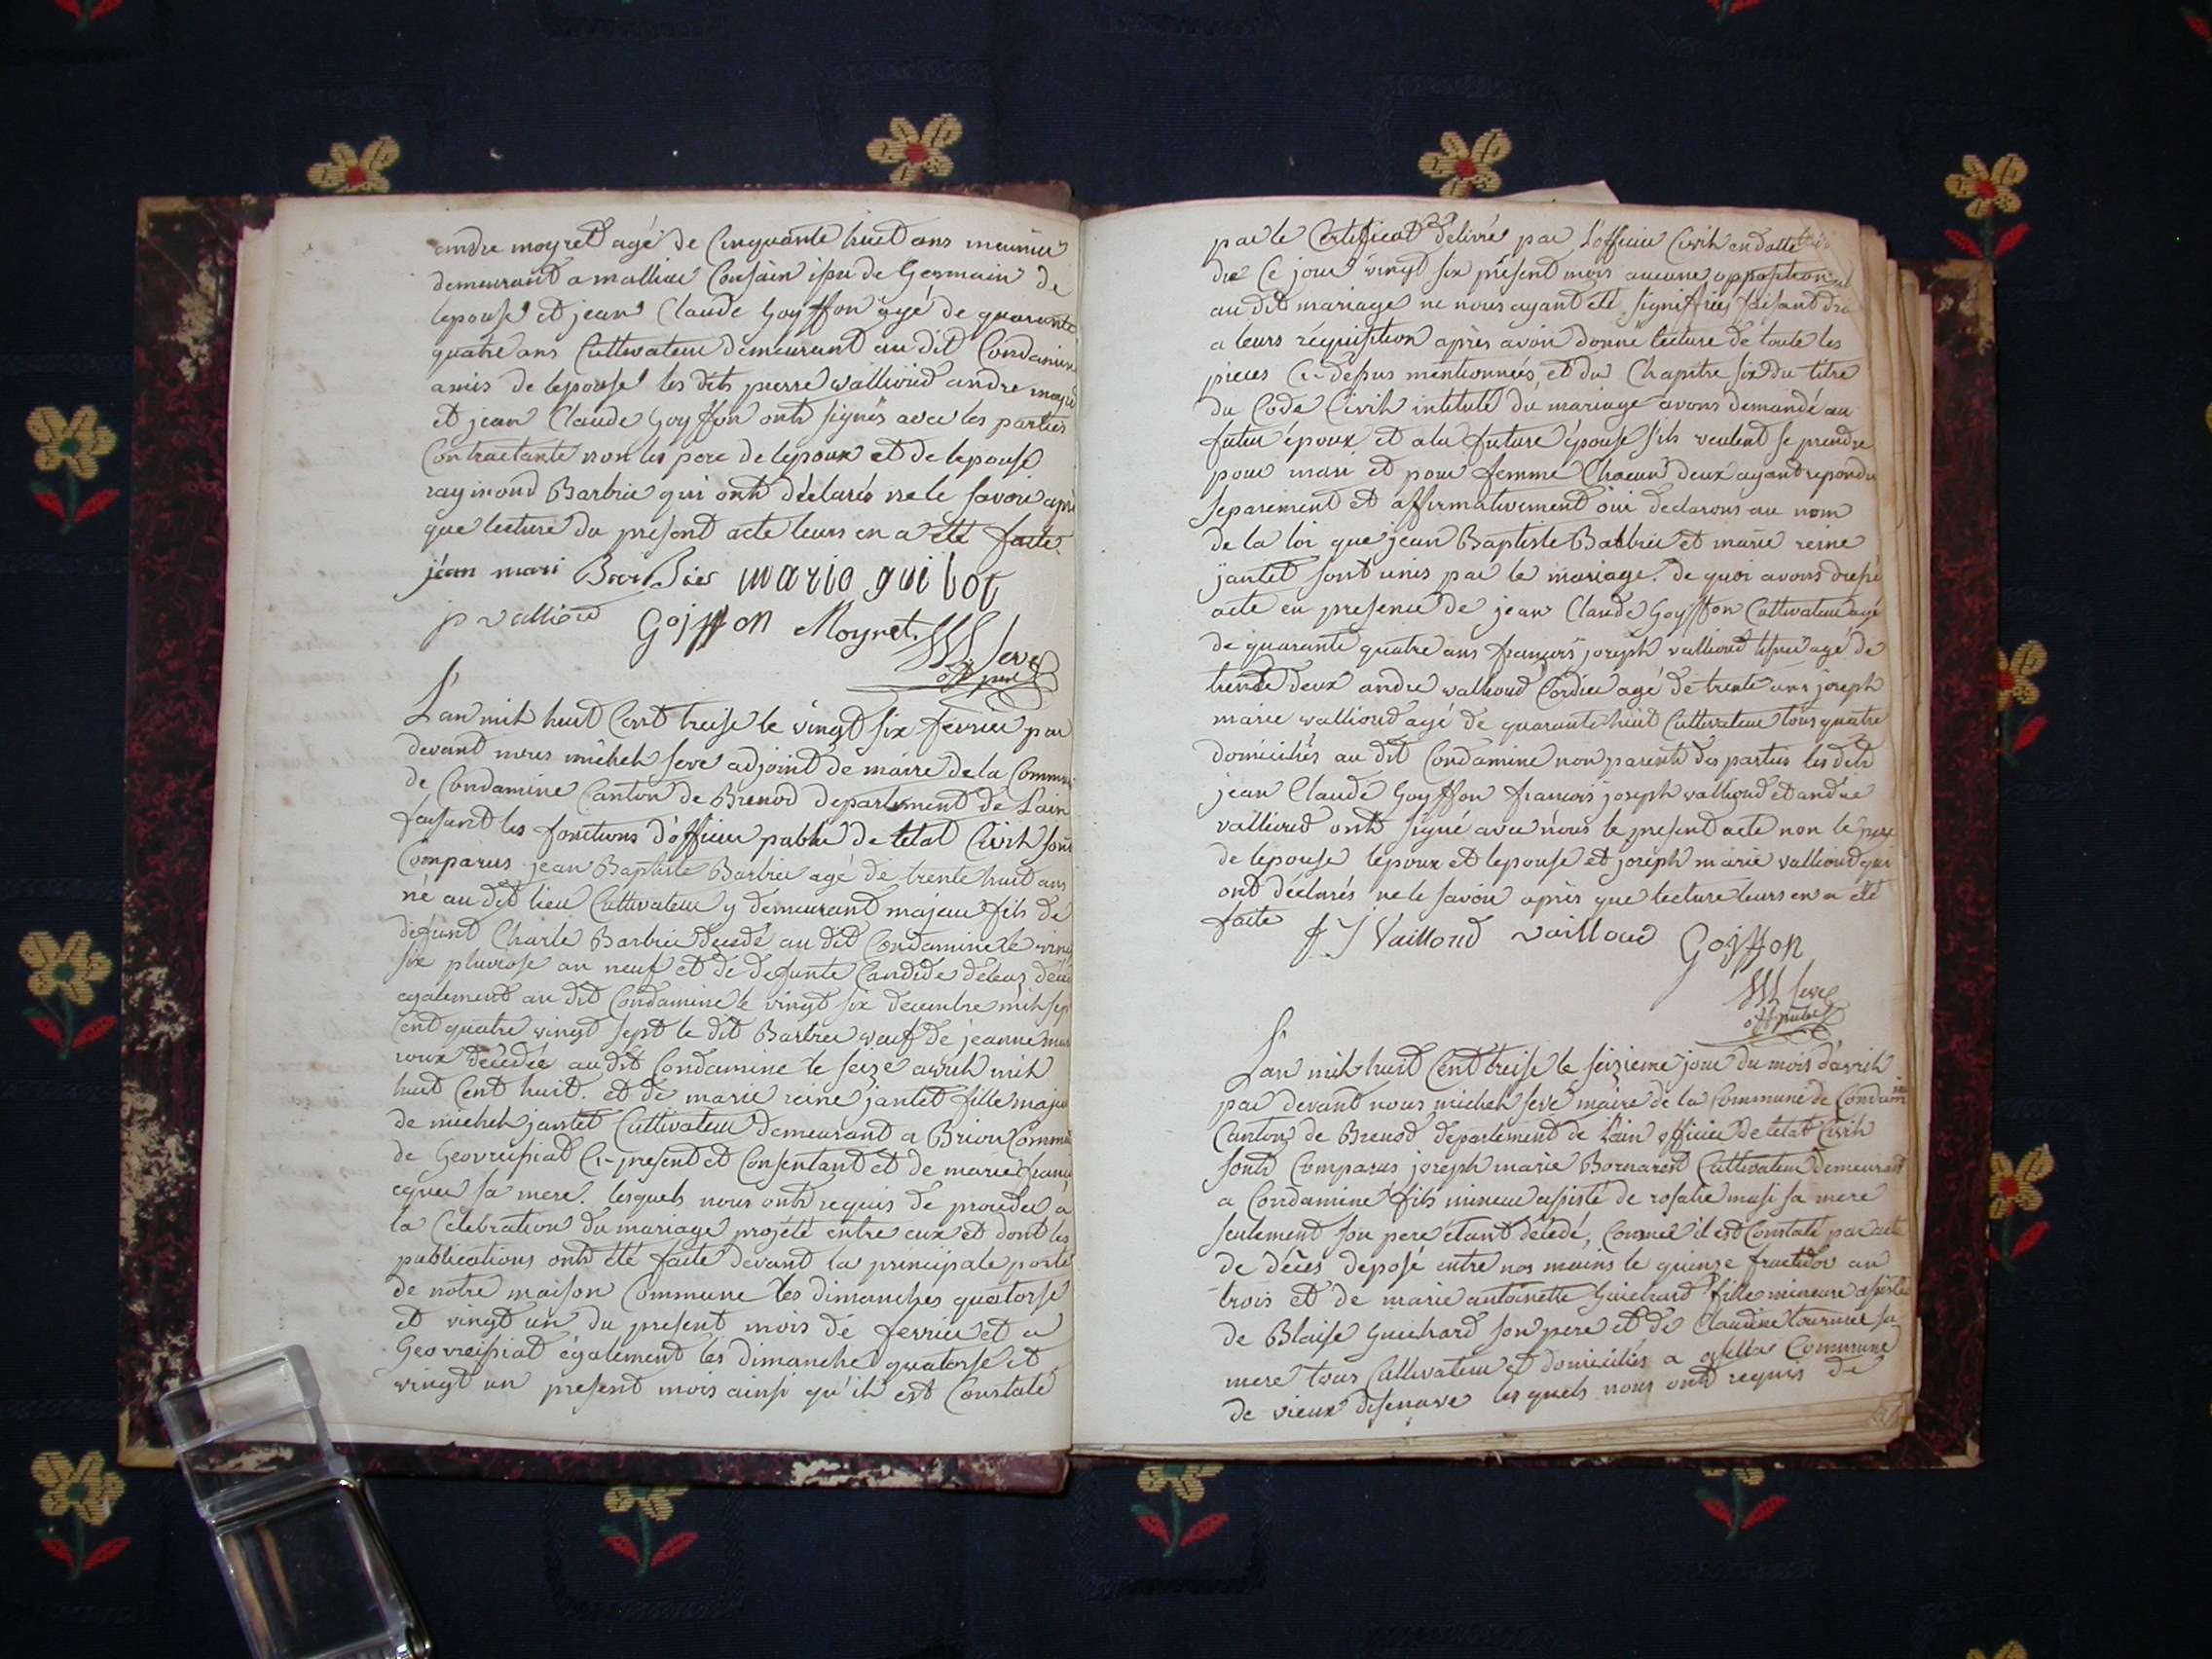 andre moyret agé de Cinquante huit ans meunier
demeurant a malliac Cousain issu de Germain de
lepouse et jean Claude Goyffon agé de quarante
quatre ans Cultivateur demeurant au dit Condamine
amis de lepouse les dits pierre vallioud andre moyret
et jean Claude Goyffon onts signés avec les parties
Contractante non les pere de lepoux et de lepouse
raymond Barbier qui onts déclarés ne le savoir après
que lecture du present acte leurs en a été faite.
jéan mari Barbier maria guilot
p vallioud Goiffon Moyret. M Seve
off public
L'an mil huit Cent treise le vingt six fevrier par
devant nous michel seve adjoint de maire de la Commune
de Condamine Canton de Brenod departement de Lain
faisant les fonctions d'officier public de letat Civil sont
Comparus jean Baptiste Barbier agé de trente huit ans
né au dit lieu Cultivateur y demeurant majeur fils de
défunt Charle Barbier decedé au dit Condamine le vingt
six pluviose an neuf et de defunte Candide
egalement au dit Condamine le vingt six decembre mil sept
Cent quatre vingt sept le dit Barbier veuf de jeanne
roux decedée au dit Condamine le seize avril mil
huit Cent huit. et de marie reine jantet fille majeur
de michel jantet Cultivateur demeurant a Brion Commune
de Geovreissiat Ci-present et Consentant et de marie
sa mere. lesquels nous onts requis de proceder a
la Celebration du mariage projété entre eux et dont les
publications onts été faite devant la principale porte
de notre maison Commune les dimanches quatorse
et vingt un du present mois de fevrier et a
Geovreissiat également les dimanche quatorse et
vingt un present mois ainsi qu'il est Constaté
par le Certificat delivré par L'officier Civil en datte
du Ce jour vingt six présent mois aucune opposition
au dit mariage ne nous ayant été signiffiées faisant droit
a leurs réquisition après avoir donné lecture de toute les
pieces Ci-dessus mentionnées, et du Chapitre six du titre
du Code Civil intitulé du mariage avons demandé au
futur époux et a la future épouse s'ils veulent se prendre
pour mari et pour femme Chacun deux ayant repondu
separement et affirmativement oui declarons au nom
de la loi que jean Baptiste Barbier et marie reine
jantet sont unis par le mariage. de quoi avons dressé
acte en presence de jean Claude Goyffon Cultivateur agé
de quarante quatre ans francois joseph vallioud agé de
trente deux andre vallioud Cordier agé de trente ans joseph
marie vallioud agé de quarante huit Cultivateur tous quatre
domiciliés au dit Condamine non parents des parties les dits
jean Claude Goyffon francois joseph vallioud et andre
vallioud onts signé avec nous le present acte non le pere
de lepouse lepoux et lepouse et joseph marie vallioud qui
ont déclarés ne le savoir après que lecture leurs en a été
faite f J Vailloud vailloud Goiffon
M Seve
off public
L'an mil huit Cent treise le seizieme jour du mois d'avril
par devant nous michel seve maire de la Commune de Condamine
Canton de Brenod departement de Lain officier de letat Civil
sonts Comparus joseph marie Bornarent Cultivateur demeurant
a Condamine fils mineur assisté de rosalie masi sa mere
seulement son pere étant decedé, Comme il est Constaté par acte
de décès déposé entre nos mains le quinse fructidor an
trois et de marie antoinette Guichard fille mineure assistée
de Blaise Guichard son pere et de Claudine tournier sa
mere tous Cultivateur et domiciliés a Commune
de vieux disenave les quels nous onts requis de